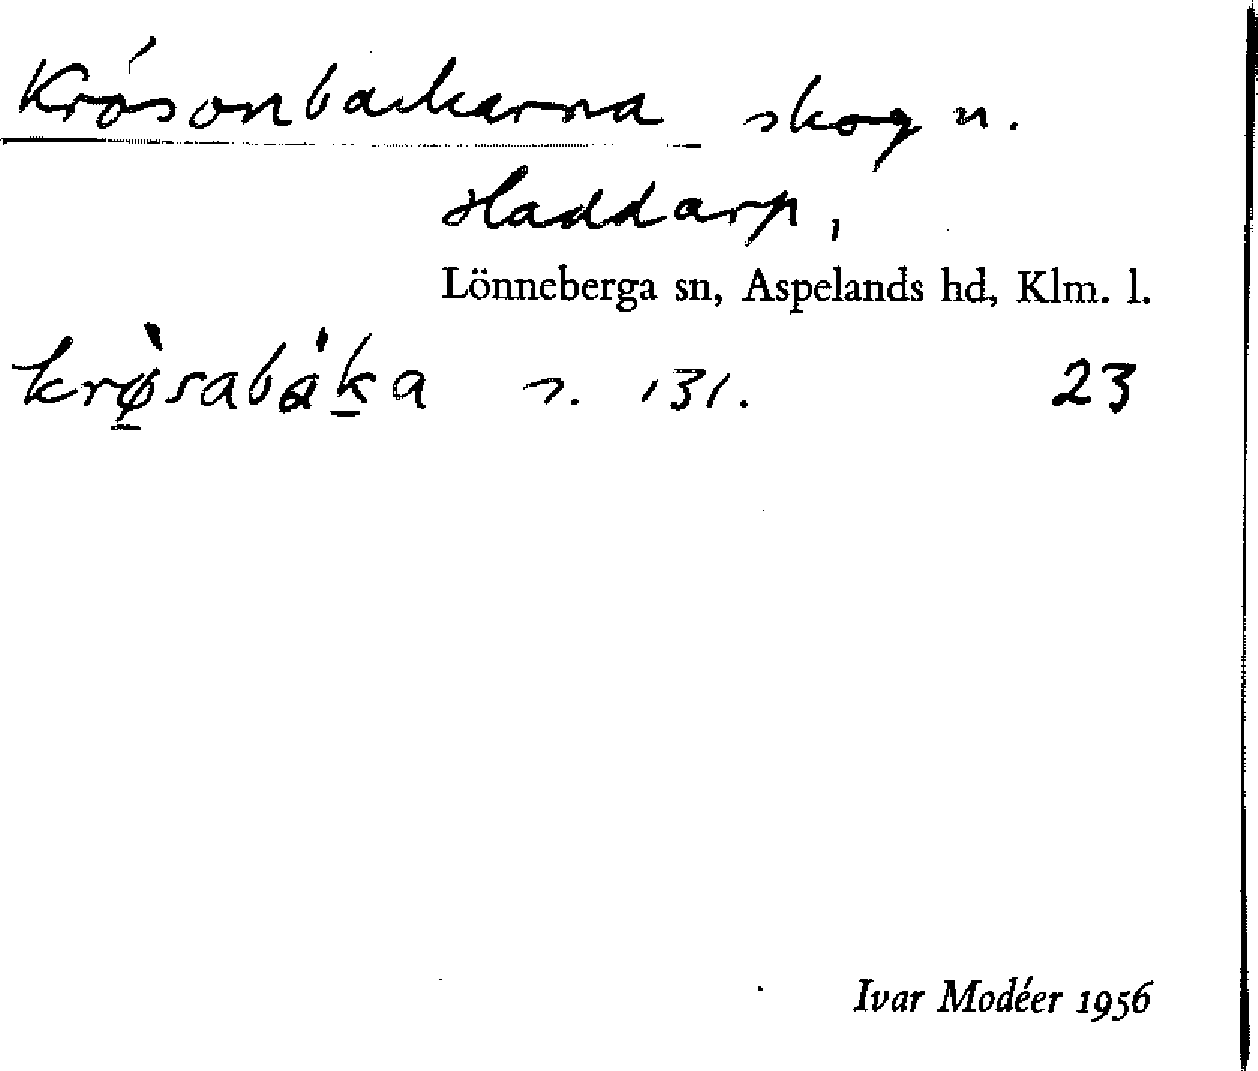 Krösonbackarna skog n.
Haddarp,
Lönneberga sn, Aspelands hd, Klm. l.
krø̀sabáka s. 131. 23
Ivar Modéer 1956